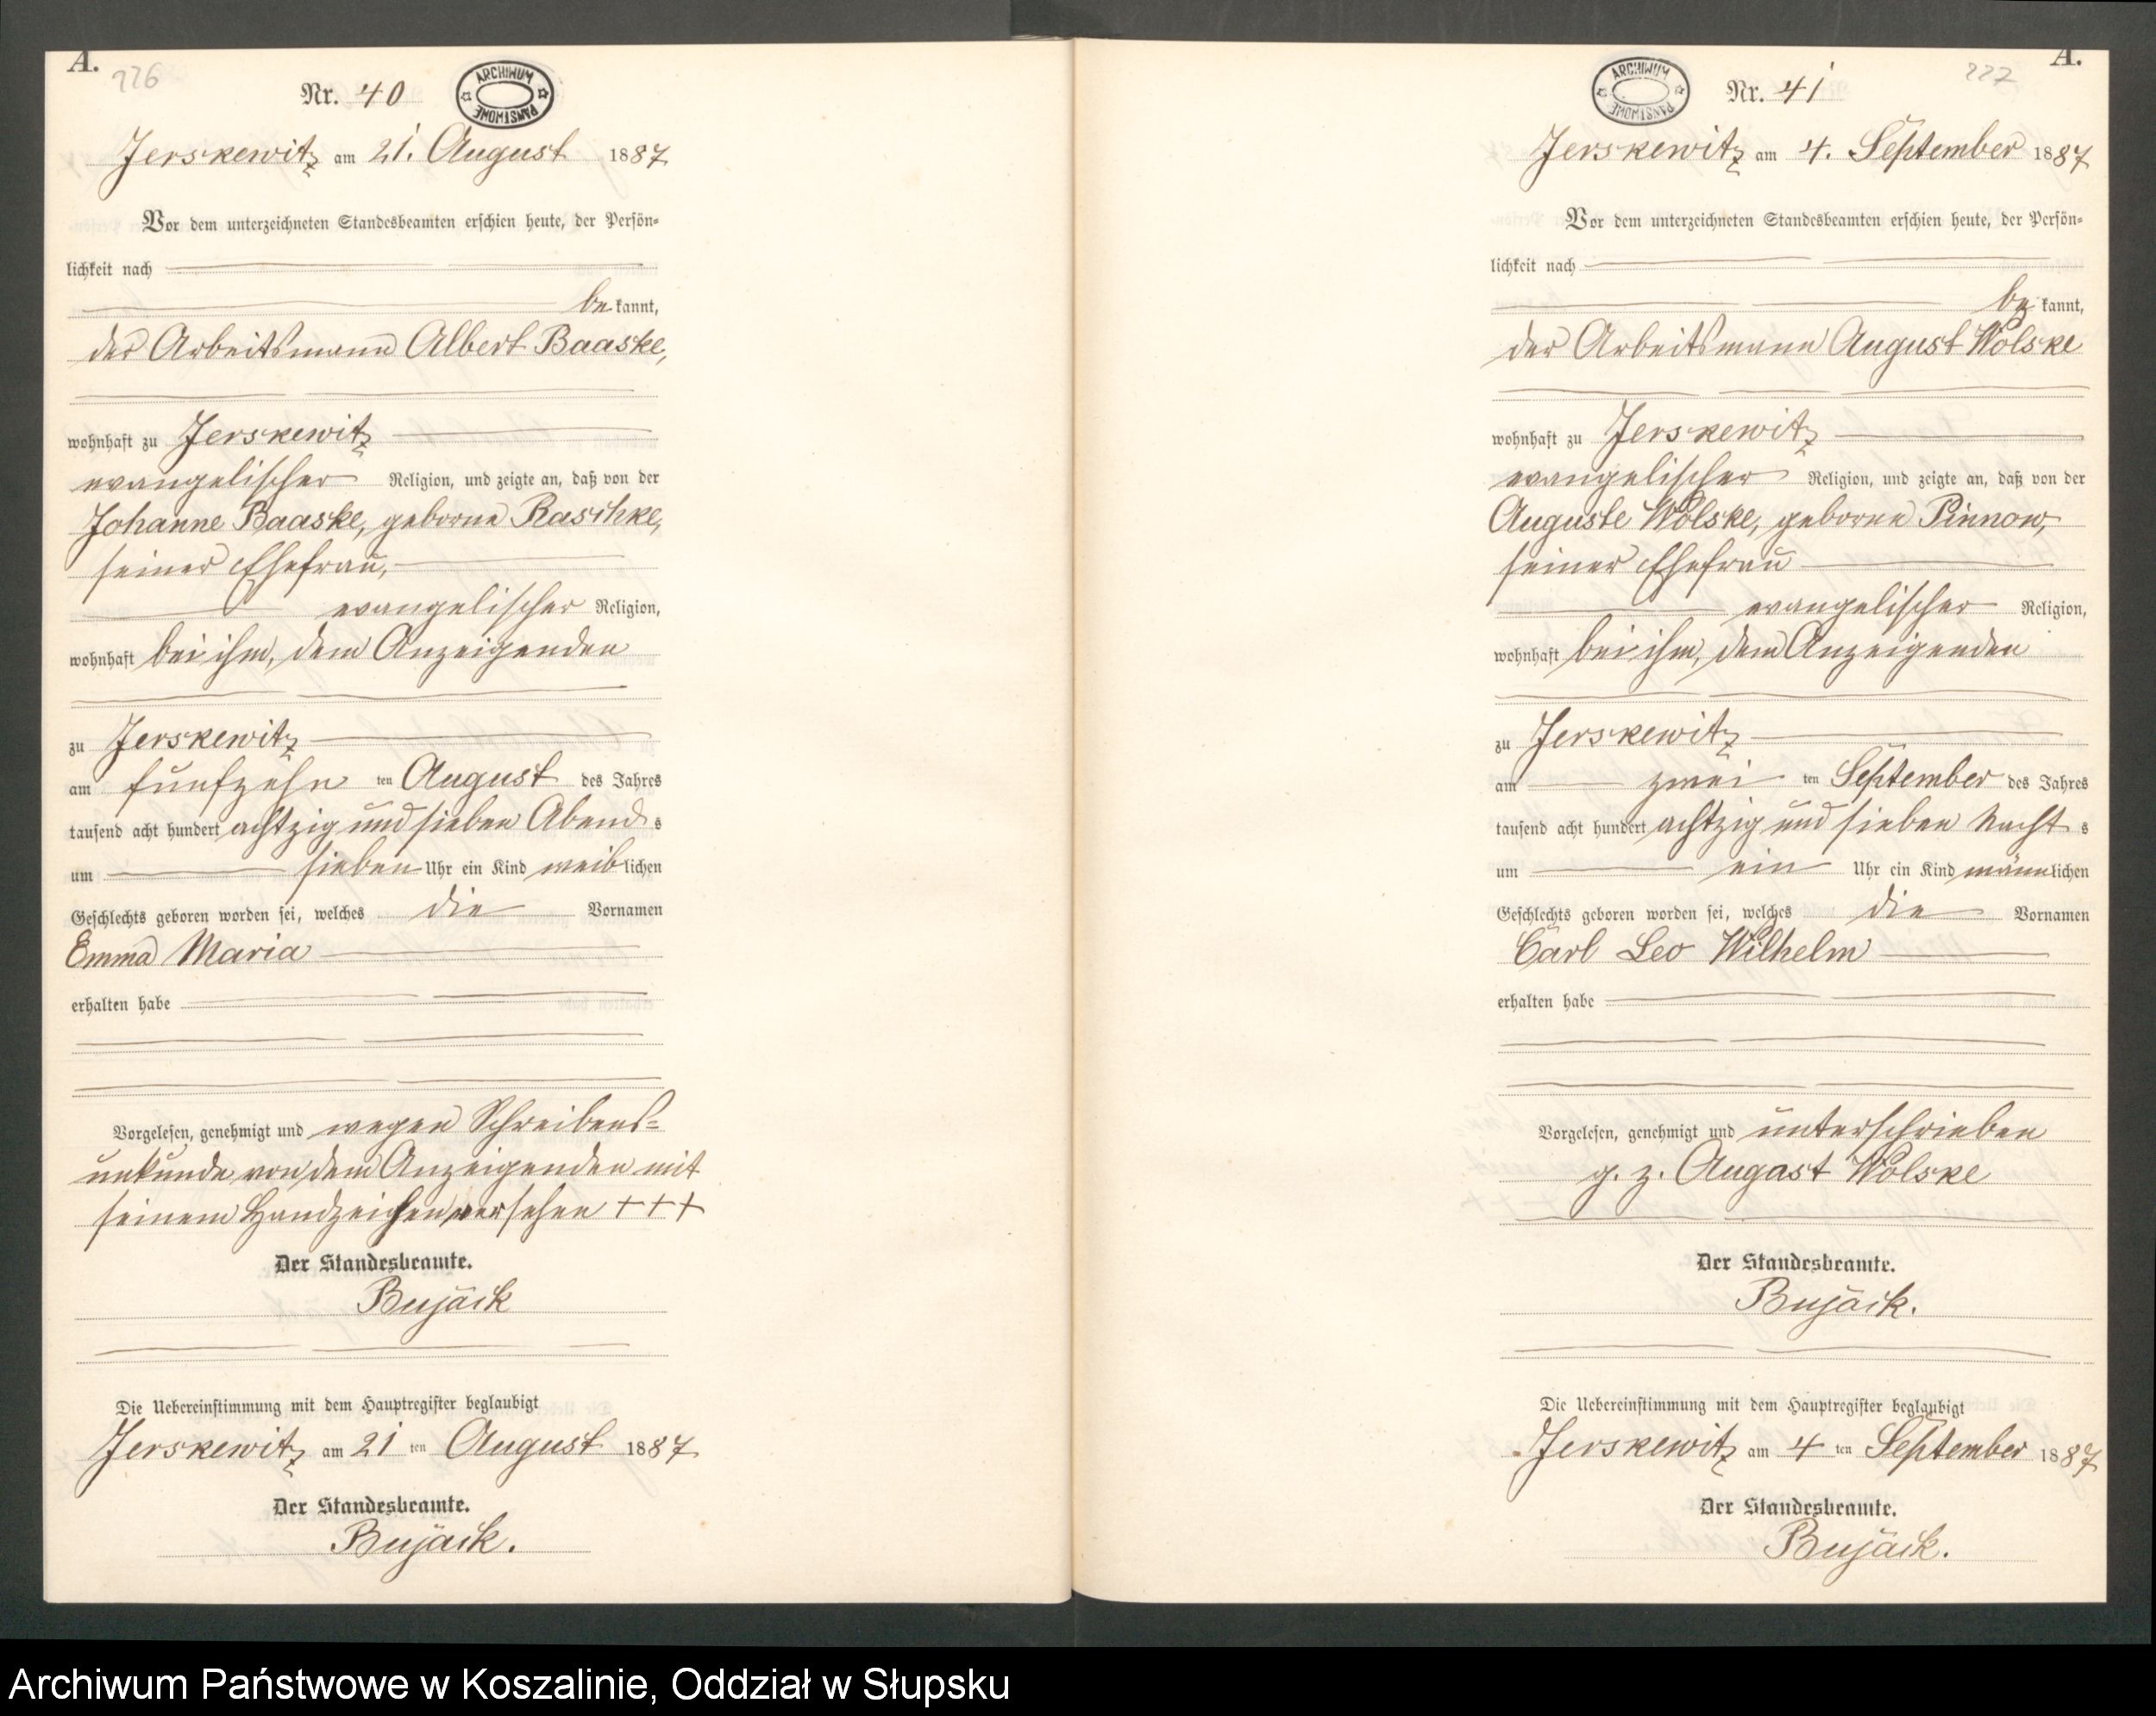 A.
226
Nr. 40
ARCHIWUM
PAŃSTWOWE
Jerskewitz am 21. August 1887
Vor dem unterzeichneten Standesbeamten erschien heute, der Persön-
lichkeit nach
be kannt,
der Arbeitsmann Albert Baaske,
wohnhaft zu Jerskewitz
evangelischer Religion, und zeigte an, daß von der
Johanne Baaske, geborne Raschke,
seiner Ehefrau,
evangelischer Religion,
wohnhaft bei ihm, dem Anzeigenden
zu Jerskewitz
am fünfzehn ten August des Jahres
tausend acht hundert achtzig und sieben Abend s
um sieben Uhr ein Kind weib lichen
Geschlechts geboren worden sei, welches die Vornamen
Emma Maria
erhalten habe
Vorgelesen, genehmigt und wegen Schreibens-
unkunde von dem Anzeigenden mit
seinem Handzeichen versehen +++
Der Standesbeamte.
Bujack
Die Uebereinstimmung mit dem Hauptregister beglaubigt
Jerskewitz am 21 ten August 1887
Der Standesbeamte.
Bujack.
A.
227
ARCHIWUM
PAŃSTWOWE
Nr. 41
Jerskewitz am 4. September 1887
Vor dem unterzeichneten Standesbeamten erschien heute, der Persön-
lichkeit nach
be kannt,
der Arbeitsmann August Wolske
wohnhaft zu Jerskewitz
evangelischer Religion, und zeigte an, daß von der
Auguste Wolske, geborne Pinnow,
seiner Ehefrau
evangelischer Religion,
wohnhaft bei ihm, dem Anzeigenden
zu Jerskewitz
am zwei ten September des Jahres
tausend acht hundert achtzig und sieben Nacht s
um ein Uhr ein Kind männ lichen
Geschlechts geboren worden sei, welches die Vornamen
Carl Leo Wilhelm
erhalten habe
Vorgelesen, genehmigt und unterschrieben
g. z. Augast Wolske
Der Standesbeamte.
Bujack.
Die Uebereinstimmung mit dem Hauptregister beglaubigt
Jerskewitz am 4 ten September 1887
Der Standesbeamte.
Bujack.
Archiwum Państwowe w Koszalinie, Oddział w Słupsku